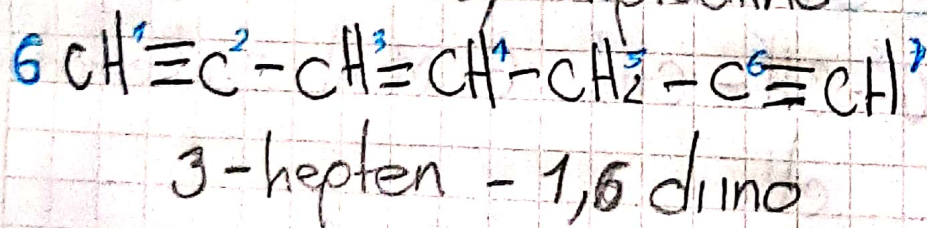 6 CH¹≡C²-CH³=CH⁴-CH₂⁵-C⁶≡CH⁷
3-hepten - 1,6 diino